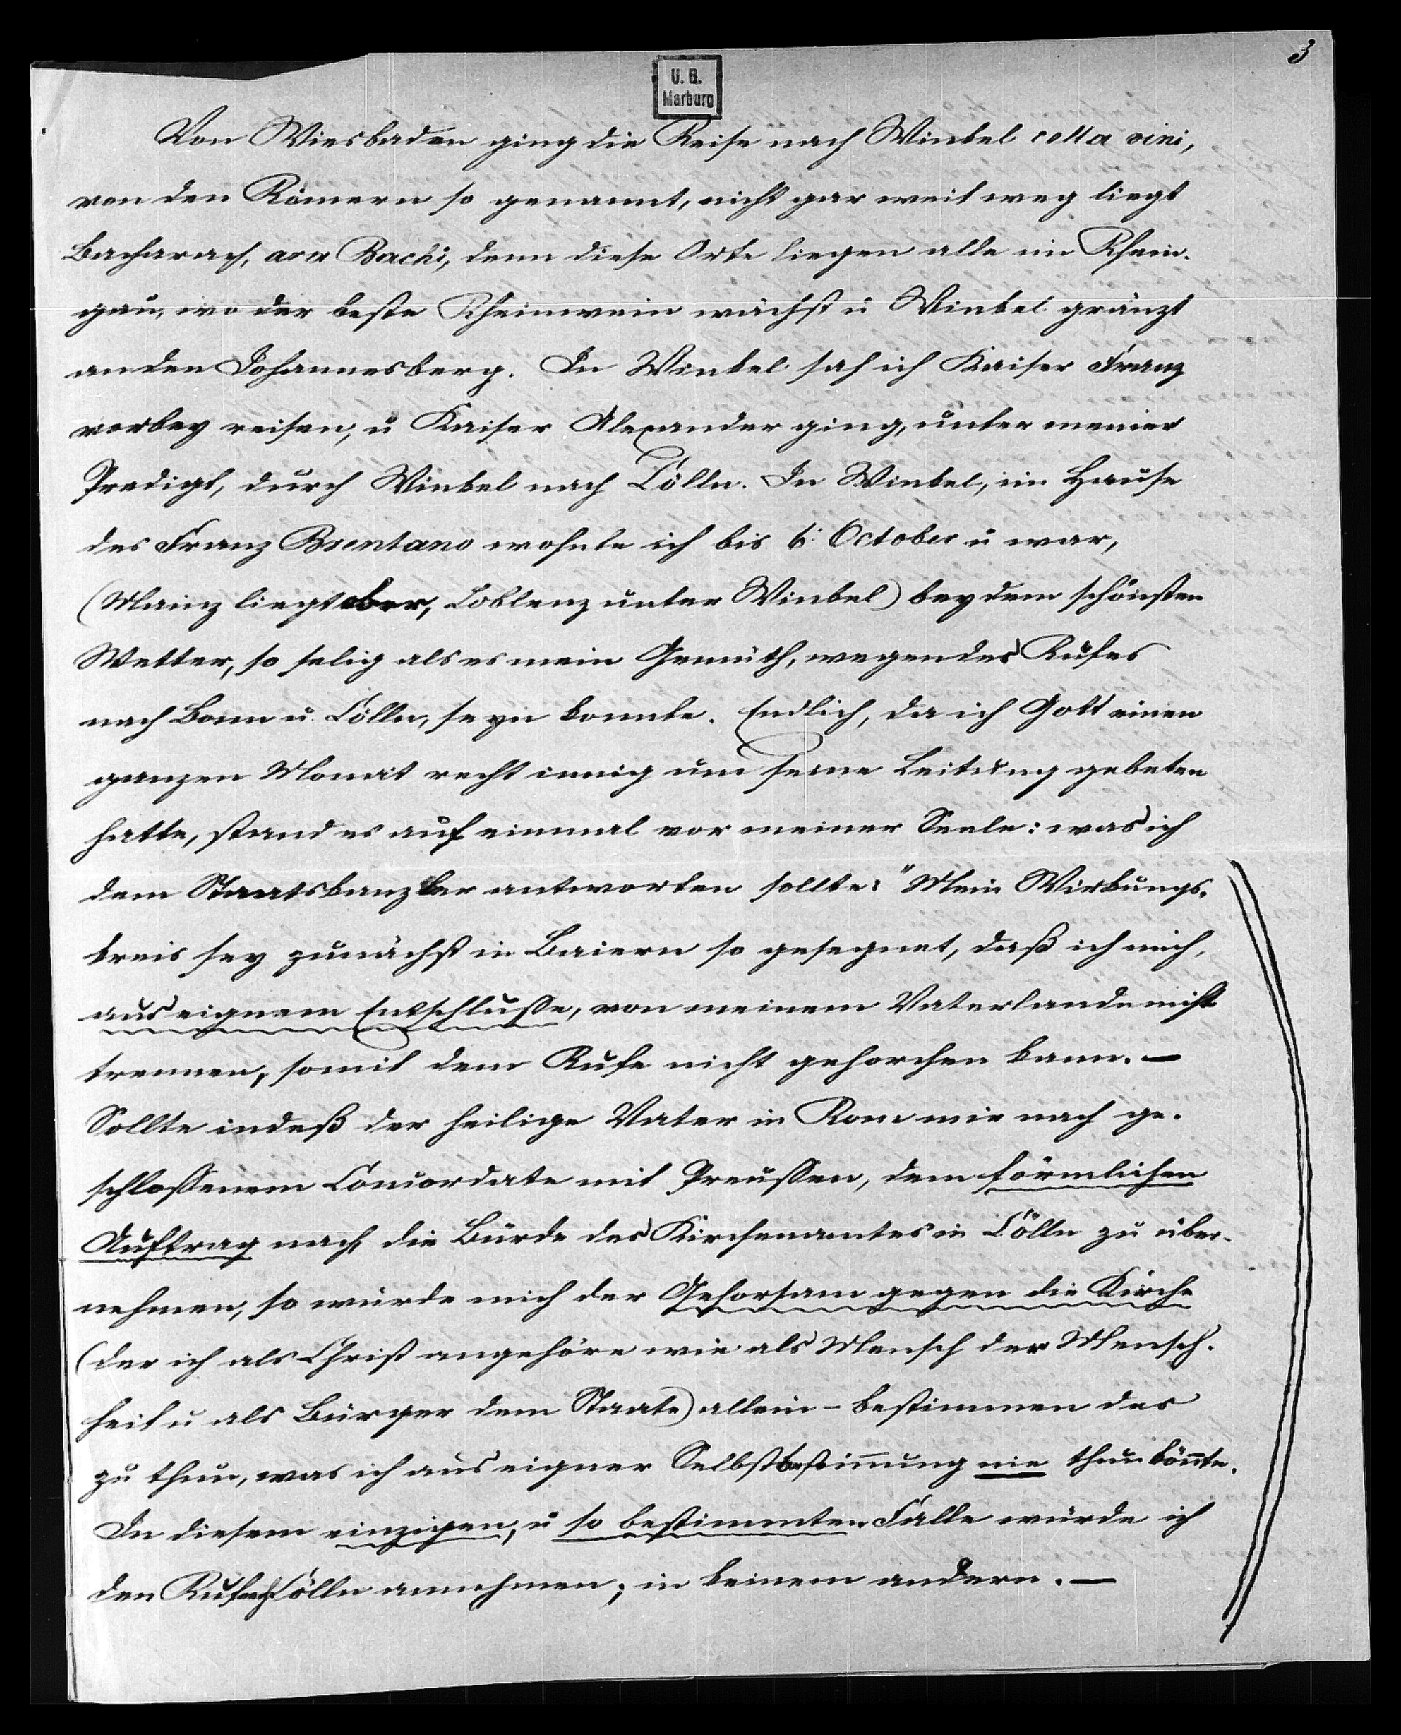 3
U. B.
Marburg
Von Wiesbaden ging die Reise nach Winkel cella vini,
von den Römern so genannt, nicht gar weit weg liegt
Bacharach, ara Bachi, denn diese Orte liegen alle im Rhein-
gau, wo der beste Rheinwein wächst u Winkel gränzt
an den Johannesberg. In Winkel sah ich Kaiser Franz
vorbey reisen, u Kaiser Alexander ging, unter meiner
Predigt, durch Winkel nach Cölln. In Winkel, im Hause
des Franz Brentano wohnte ich bis 6t October u war,
(Mainz liegt ober, Coblenz unter Winkel) bey dem schönsten
Wetter, so selig als es mein Gemüth, wegen des Rufes
nach Bonn u Cölln, seyn konnte. Endlich, da ich Gott einen
ganzen Monat recht innig um seine Leitung gebeten
hatte, stand es auf einmal vor meiner Seele: was ich
dem Staatskanzler antworten sollte: "Mein Wirkungs-
kreis sey zunächst in Baiern so gesegnet, daß ich mich,
aus eignem Entschlusse, von meinem Vaterlande nicht
trennen, somit dem Rufe nicht gehorchen kann. —
Sollte indeß der heilige Vater in Rom mir nach ge-
schlossenem Concordate mit Preussen, dem förmlichen
Auftrag nach die Bürde des Kirchenamtes in Cölln zu über-
nehmen, so würde mich der Gehorsam gegen die Kirche
(der ich als Christ angehöre wie als Mensch der Mensch-
heit u als Bürger dem Staate) allein - bestimmen das
zu thun, was ich aus eigner Selbstbestimung nie thun könte.
In diesem einzigen, u so bestimmten Falle würde ich
den Ruf nach Cölln annehmen; in keinem andern. —